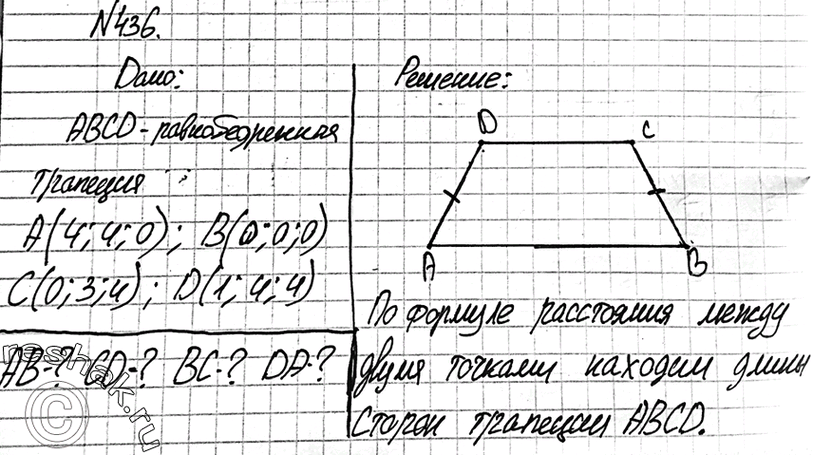 N436.
Дано:
Решение:
ABCD - равнобедренная
трапеция
A(4;4;0); B(0;0;0)
C(0;3;4); D(1;4;4)
AB-? CD-? BC-? DA-?
D C
A B
По формуле расстояния между
двумя точками находим длины
сторон трапеции ABCD.
reshak.ru
©